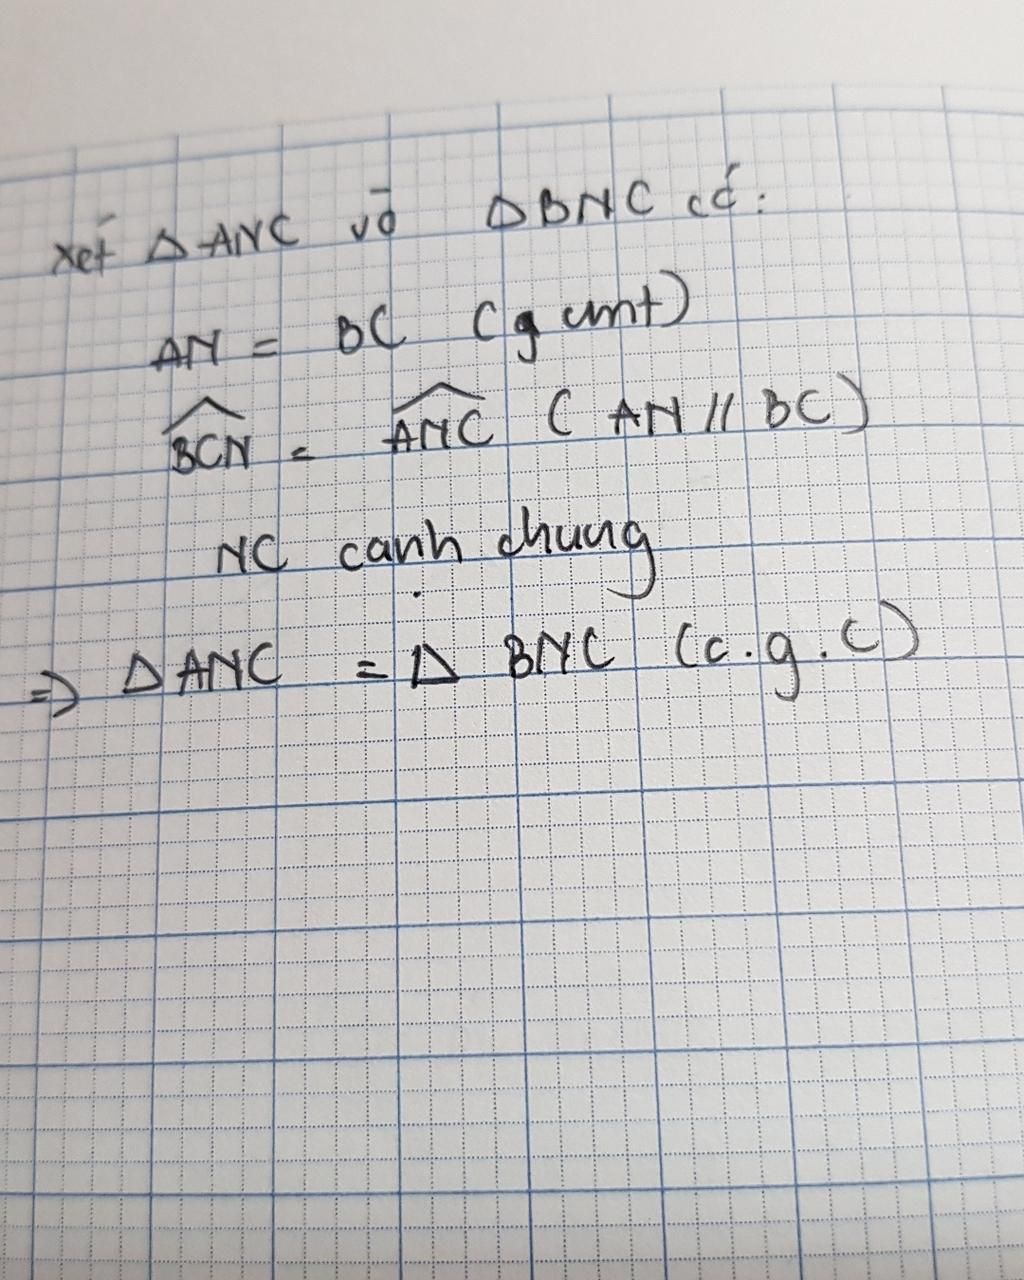 Xét Δ ANC và Δ BNC có:
AN = BC (g cmt)
\widehat{BCN} = \widehat{ANC} ( AN // BC)
NC cạnh chung
=> Δ ANC = Δ BNC (c.g.c)